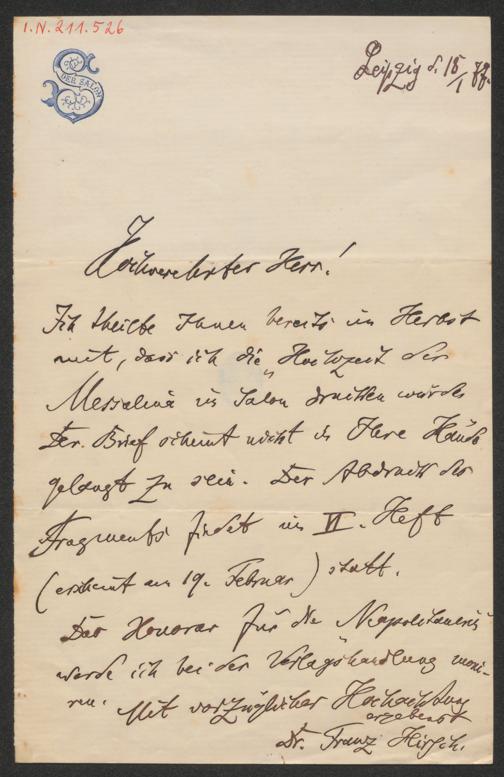 I.N. 211.526
DER SALON
Leipzig d. 15/1 77.
Hochverehrter Herr!
Ich theilte Ihnen bereits im Herbst
mit, dass ich die „Hochzeit der
Messalina" im Salon drucken würde.
Der Brief scheint nicht in Ihre Hände
gelangt zu sein. Der Abdruck des
Fragments findet im VI. Heft
(erscheint am 19. Februar) statt.
Das Honorar für die Neapolitanerin
werde ich bei der Verlagshandlung moni-
ren. Mit vorzüglicher Hochachtung
ergebenst
Dr. Franz Hirsch.